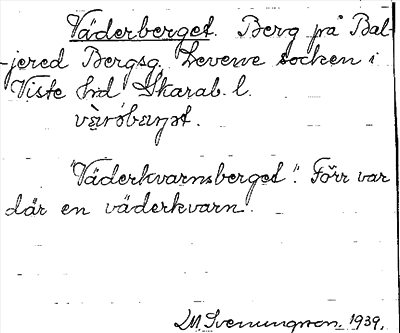 Väderberget. Berg på Bal-
-jered Bergsg. Levene socken i
Viste hd Skarab. l.
"Väderkvarnsberget". Förr var
där en väderkvarn.
Svenungson. 1939.